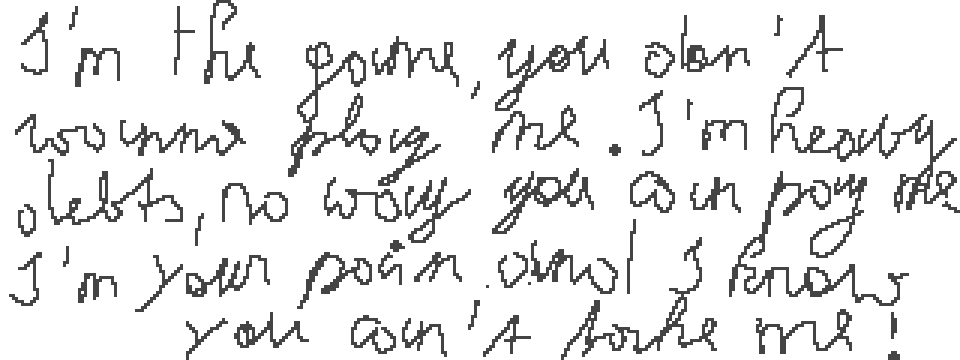 I'm the game, you don't
wanna play me. I'm heavy
debts, no way you can pay me
I'm your pain and I know
you can't take me!